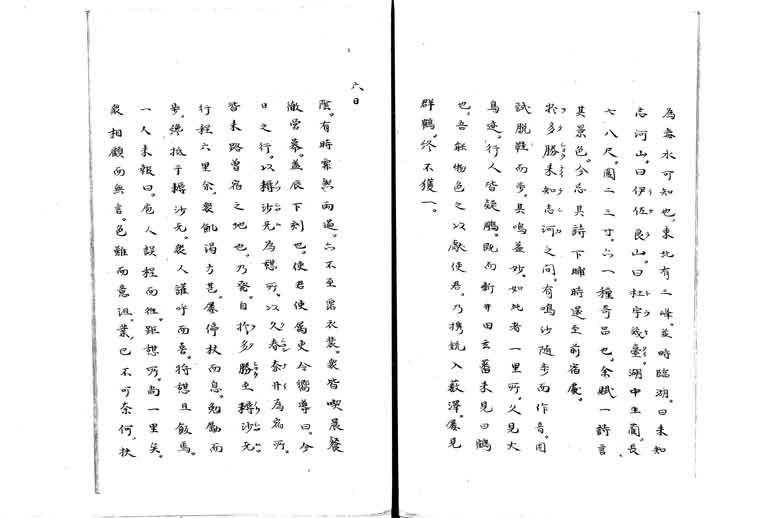 為毒水可知也。東北有二峰。並時臨湖。曰未知
志河山。曰伊佐良山。曰社宇幾臺。湖中生蘭。長
七八尺。圍二三寸。六一種奇品也。余賦一詩言
其景色。今忘其詩下晡時還至前宿處。
於多勝未知志河之間。有鳴沙随歩而作音。因
試脱鞋而歩。其鳴益妙。如此者一里所。又見大
鳥迹。行人皆疑鵬。既而新井田玄蕃来見曰鶴
也。吾能物色之以獻使君。乃携銃入藪澤。屢見
群鶴。終不獲一。
六日
陰。有時霏無雨過。六不至霑衣裳。衆皆喫晨餐
撤營幕。蓋辰下刻也。使君使属吏令嚮導曰。今
日之行。以轉沙无為憩所。以久春奈井為宿所。
皆来路曽宿之地也。乃発。自於多勝至轉沙无。
行程六里余。衆飢渇方甚。屢停杖而息。勉勵而
歩。漸抵于轉沙无。衆人讙呼而喜。将憩且飯焉。
一人来報曰。庖人誤程而往。距憩所。尚一里矣。
衆相顧而無言。色雖而意沮。業已不可奈何。扶